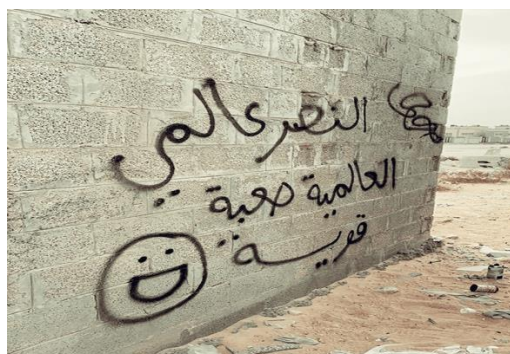 النصر عالمي
العالمية صعبة
قوية